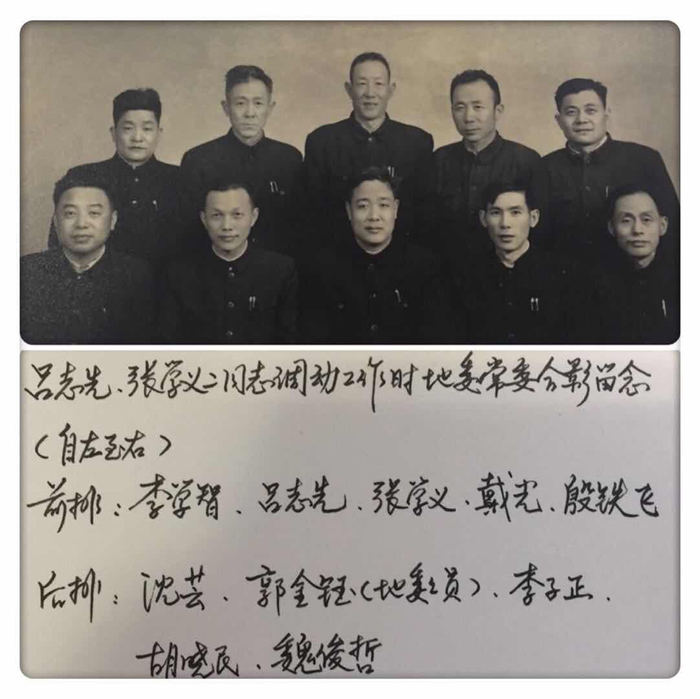 吕志先、张学义二同志调动工作时地委常委合影留念
(自左至右)
前排：李学智、吕志先、张学义、戴光、殷铁飞
后排：沈芸、郭金钰(地委委员)、李子正、
胡晓民、魏俊哲